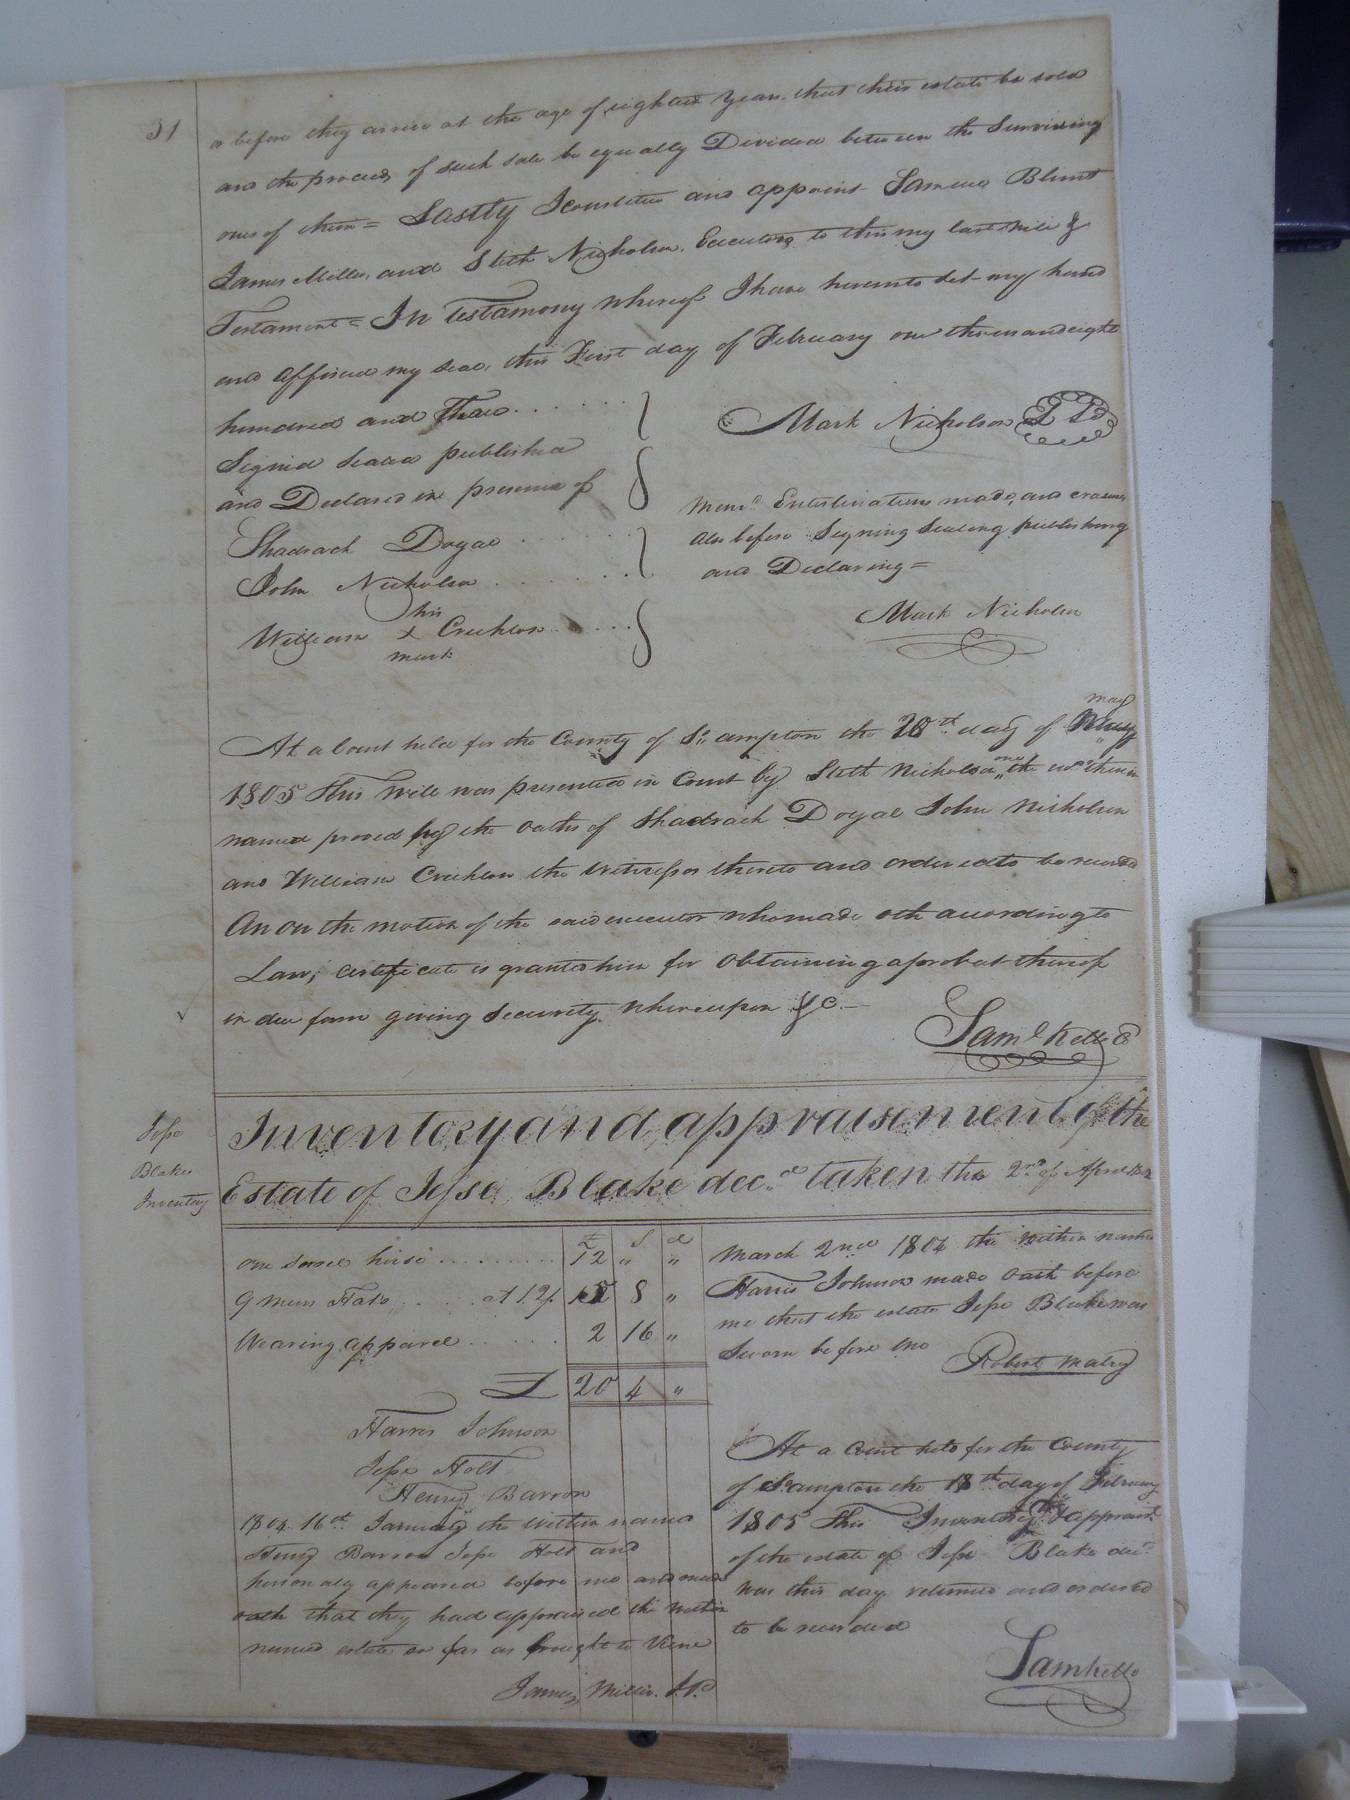 31
or before they arrive at the age of eighteen years that their estate be sold
and the proceeds of such sale be equally Divided between the Surviving
ones of them = Lastly I constitute and appoint Samuel Blunt
James Miller and Stith Nicholson Executors to this my last will &
Testament = In Testamony whereof I have hereunto set my hand
and affixed my seal this First day of February one thousand eight
hundred and Three
Mark Nicholson L S
Signed sealed published
and Declared in presence of
Shadrach Doyal
John Nicholson
his
William x Crichlow
mark
Memd. Enterlineations made, and erasures
also before Signing Sealing publishing
and Declaring =
Mark Nicholson
may
At a Court held for the County of So ampton the 20th day of May
1805 This Will was presented in Court by Stith Nicholson one the exors therein
named proved by the oaths of Shadrach Doyal John Nicholson
and William Crichlow the Witnesses thereto and ordered to be recorded
An on the motion of the said executor who made oth according to
Law, certificate is granted him for obtaining a probat thereof
in due form giving security. Whereupon &c. —
Saml Kello C
Jesse
Blake
Inventory
Inventory and appraisement of the
Estate of Jesse Blake decd. taken the 2nd of April
£ S d
one sorrel horse 12 " "
9 Mens Hats at 12/. 5 8 "
Wearing apparel 2 16 "
£ 20 4 "
Harris Johnson
Jesse Holt
Henry Barron
1804 16th January the within named
Henry Barron Jesse Holt and
personaly appeared before me and made
oath that they had appraised the within
named estate so far as brought to View
James Miller J.P.
March 2nd 1804 the within named
Harris Johnson made oath before
me that the estate Jesse Blake was
Sworn before me
Robert Mabry
At a Court held for the County
of So ampton the 18th day of February
1805 This Inventory & Appraist
of the estate of Jesse Blake decd.
was this day returned and ordered
to be recorded
Sam Kello